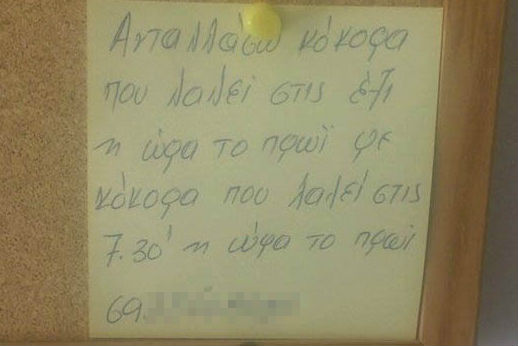 Ανταλλάσω κόκορα
που λαλεί στις έξι
η ώρα το πρωϊ με
κόκορα που λαλεί στις
7.30' η ώρα το πρωϊ
69.